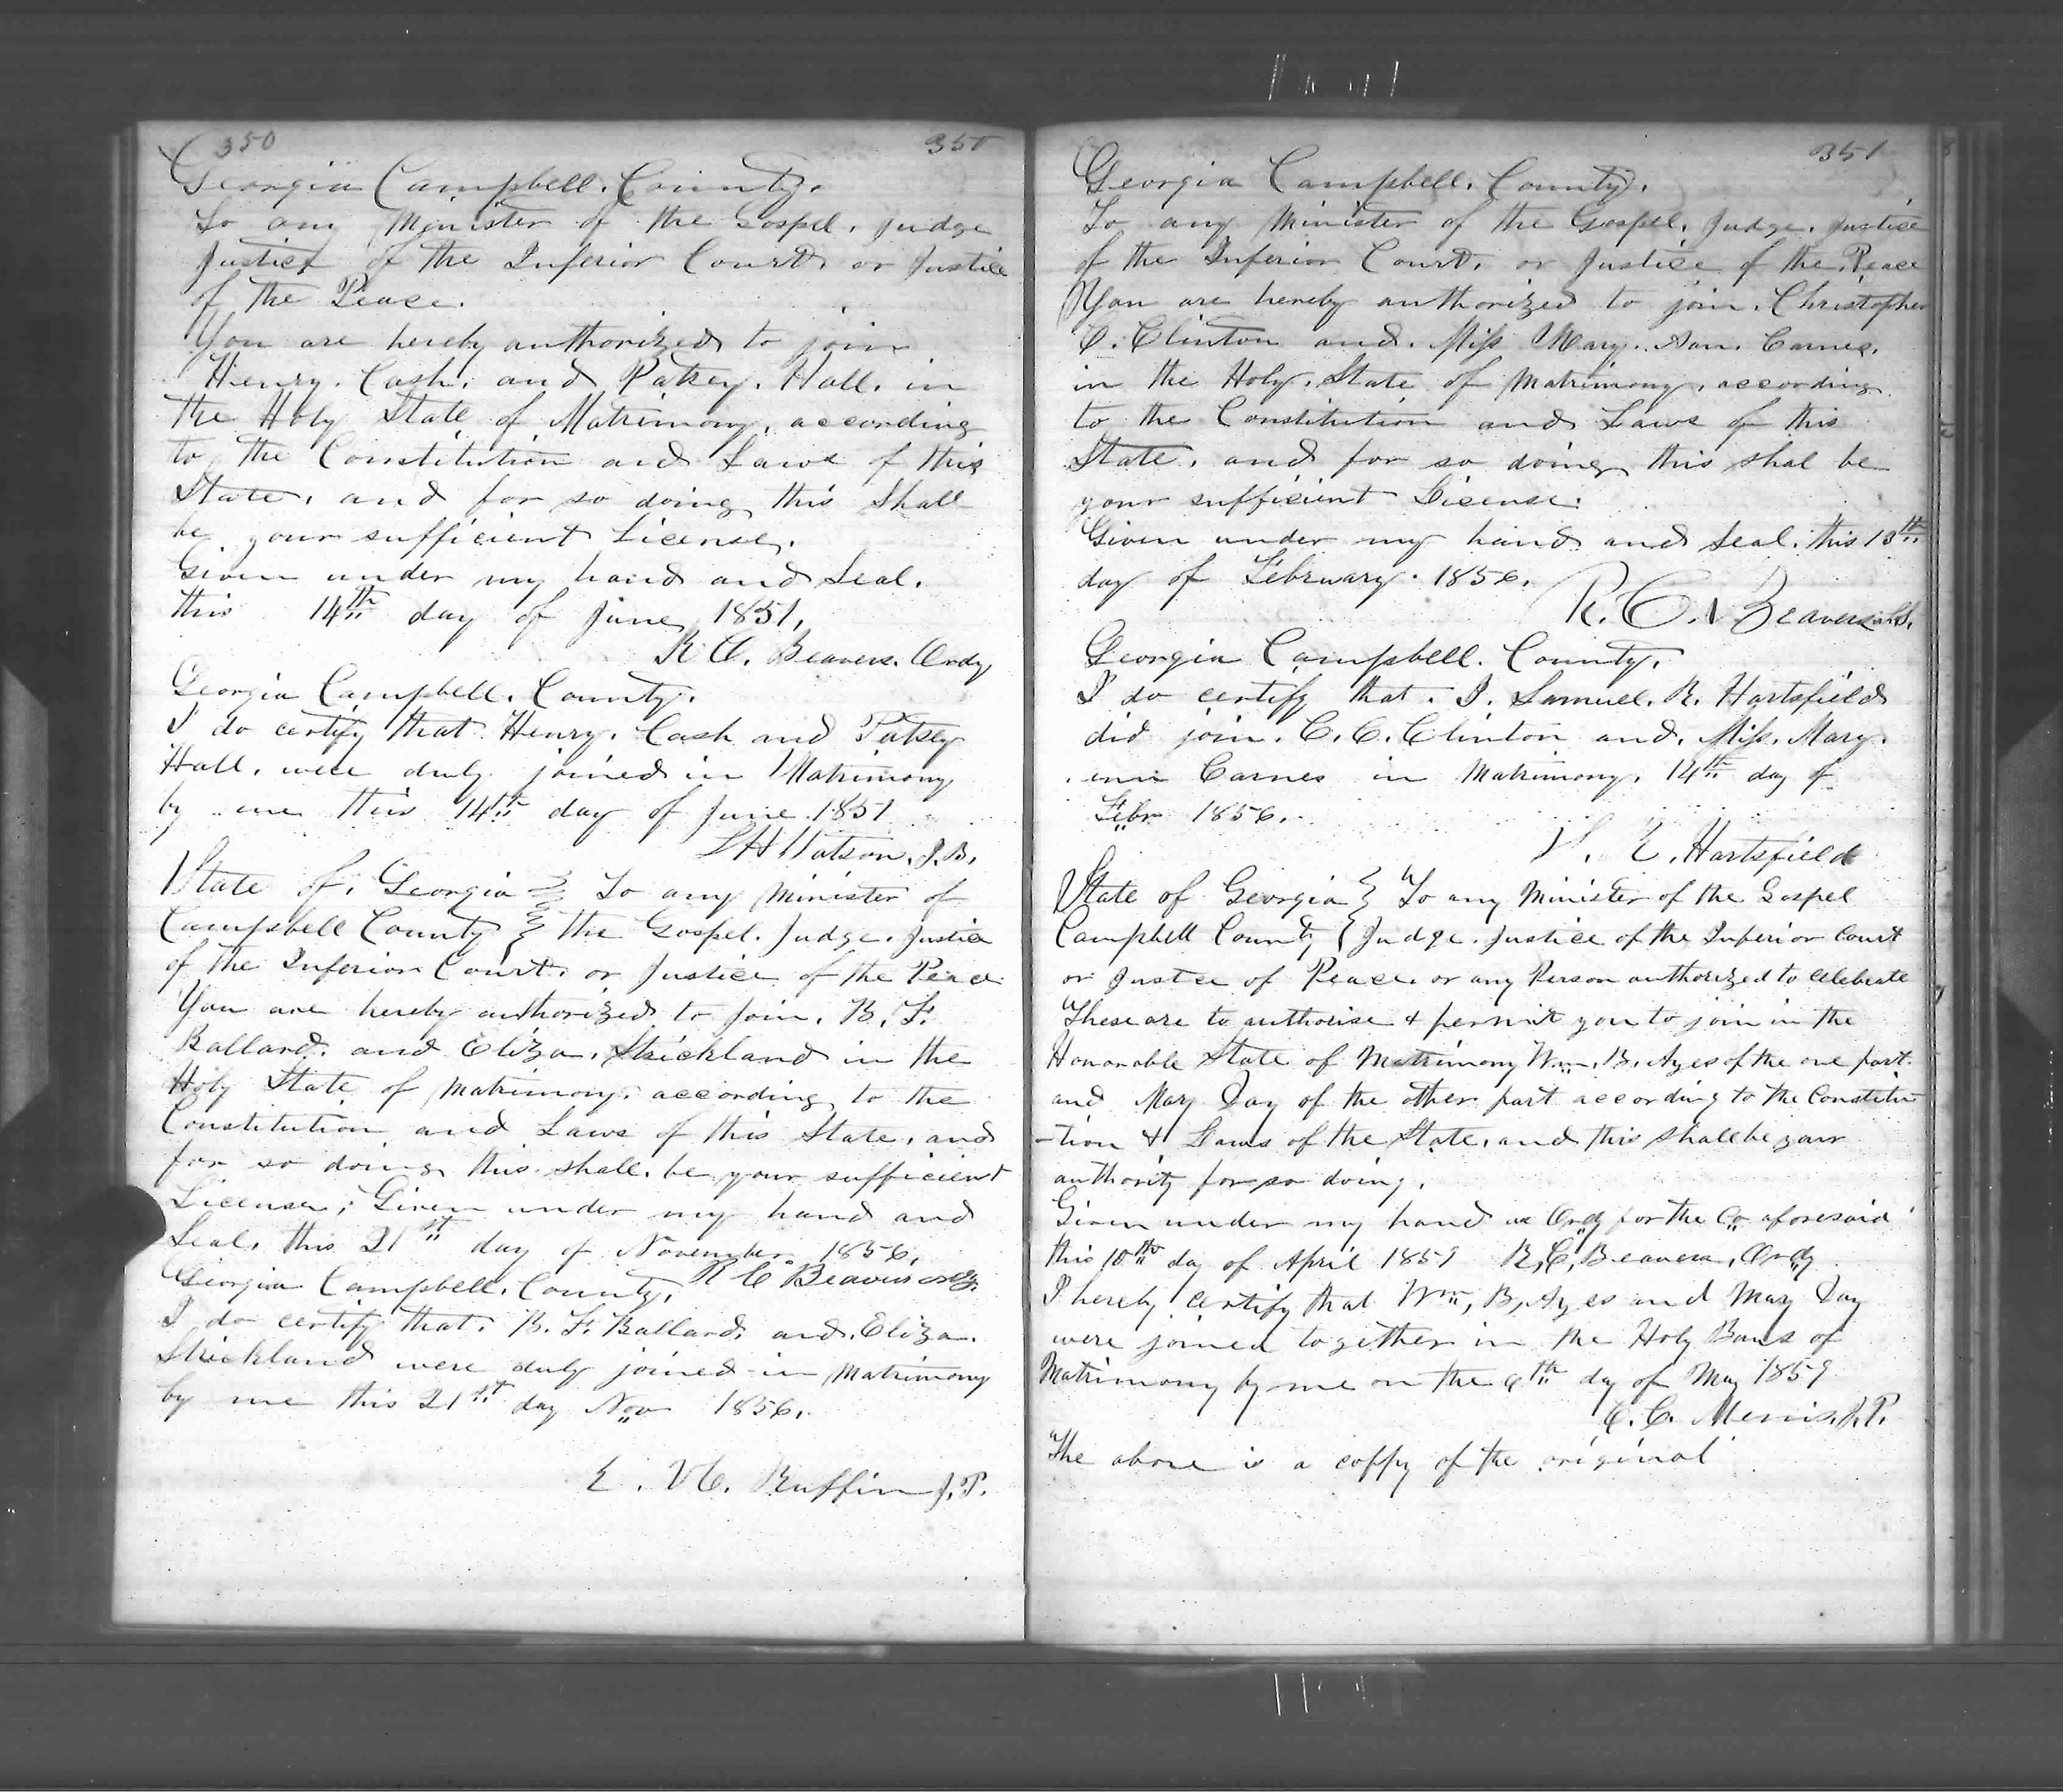 350
350
Georgia Campbell. County.
To any Minister of the Gospel. Judge
Justice of the Inferior Court, or Justice
of the Peace.
You are hereby authorized to join
Henry. Cash. and Patsey. Hall. in
the Holy State of Matrimony, according
to the Constitution and Laws of this
State, and for so doing this Shall
be your sufficient License.
Given under my hand and Seal.
this 14th day of June 1851.
Beavers. Ordy
Georgia Campbell. County.
I do certify that Henry. Cash and Patsey
Hall. were duly joined in Matrimony
by me this 14th day of June 1851
Watson.
State of. Georgia } To any Minister of
Campbell County } the Gospel. Judge. Justice
of the Inferior Court. or Justice of the Peace
You are hereby authorized to join. B. F.
Ballard. and Eliza. Strickland in the
Holy State of Matrimony. according to the
Constitution and Laws of this State, and
for so doing this shall. be your sufficient
License; Given under my hand and
Seal. this 21st day of November 1856.
R C Beavers Ordy.
Georgia Campbell. County.
I do certify that. B. F. Ballard. and. Eliza.
Strickland were duly joined in Matrimony
by me this 21st day Nov 1856.
Ruffin J.P.
351
Georgia Campbell. County.
To any Minister of the Gospel. Judge. Justice
of the Inferior Court. or Justice of the Peace
You are hereby authorized to join. Christopher
C. Clinton and. Miss Mary. Ann. Carnes.
in the Holy. State of Matrimony, according
to the Constitution and Laws of this
State. and for so doing this shal be
your sufficient License.
Given under my hand and Seal. this 13th
day of February. 1856.
R. C. Beavers
Georgia Campbell. County.
I do certify that. I. Samuel. R. Hartsfield
did join. C. C. Clinton and. Miss. Mary.
Carnes in Matrimony. 14th day of
Febr 1856.
Hartsfield
State of Georgia } To any Minister of the Gospel
Campbell County } Judge. Justice of the Inferior Court
or Justce of Peace. or any Person authorized to celebrate
These are to authorise & permit you to join in the
Honorable State of Matrimony Wm. B. Ayes of the one part.
and Mary Day of the other part according to the Constitu
-tion & Laws of the State, and this shall be your
authority for so doing.
Given under my hand as Ordy for the Co. aforesaid
this 10th day of April 1859 R, C, Beavers, Ordy
I hereby certify that Wm, B, Ayes and Mary Day
were joined together in the Holy Bans of
Matrimony by me on the 9th day of May 1859
J.P.
The above is a coppy of the original